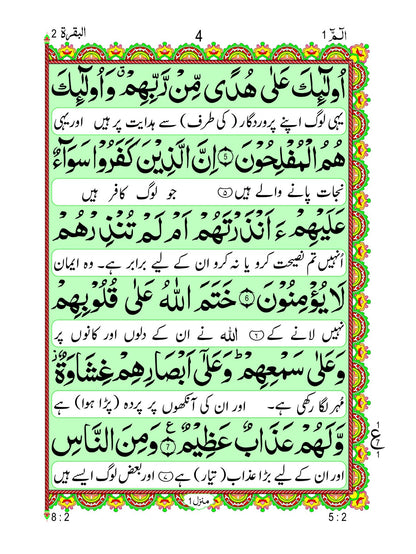 البقرة 2 4 الٓمّٓ 1
اُولٰٓئِكَ عَلٰى هُدًى مِّنْ رَّبِّهِمْ ۙ وَاُولٰٓئِكَ
یہی لوگ اپنے پروردگار (کی طرف) سے ہدایت پر ہیں اور یہی
هُمُ الْمُفْلِحُوْنَ ۝5 اِنَّ الَّذِيْنَ كَفَرُوْا سَوَآءٌ
نجات پانے والے ہیں ۝۵ جو لوگ کافر ہیں
عَلَيْهِمْ ءَاَنْذَرْتَهُمْ اَمْ لَمْ تُنْذِرْهُمْ
اُنہیں تم نصیحت کرو یا نہ کرو ان کے لیے برابر ہے۔ وہ ایمان
لَا يُؤْمِنُوْنَ ۝6 خَتَمَ اللّٰهُ عَلٰى قُلُوْبِهِمْ
نہیں لانے کے ۝۶ اللہ نے ان کے دلوں اور کانوں پر
وَعَلٰى سَمْعِهِمْ ؕ وَعَلٰٓى اَبْصَارِهِمْ غِشَاوَةٌ ؗ
مُہر لگا رکھی ہے۔ اور ان کی آنکھوں پر پردہ (پڑا ہوا) ہے
وَّلَهُمْ عَذَابٌ عَظِيْمٌ ۝7 ع وَمِنَ النَّاسِ
اور ان کے لیے بڑا عذاب (تیار) ہے ۝۷ اور بعض لوگ ایسے ہیں
منزل 1
8 : 2 5 : 2